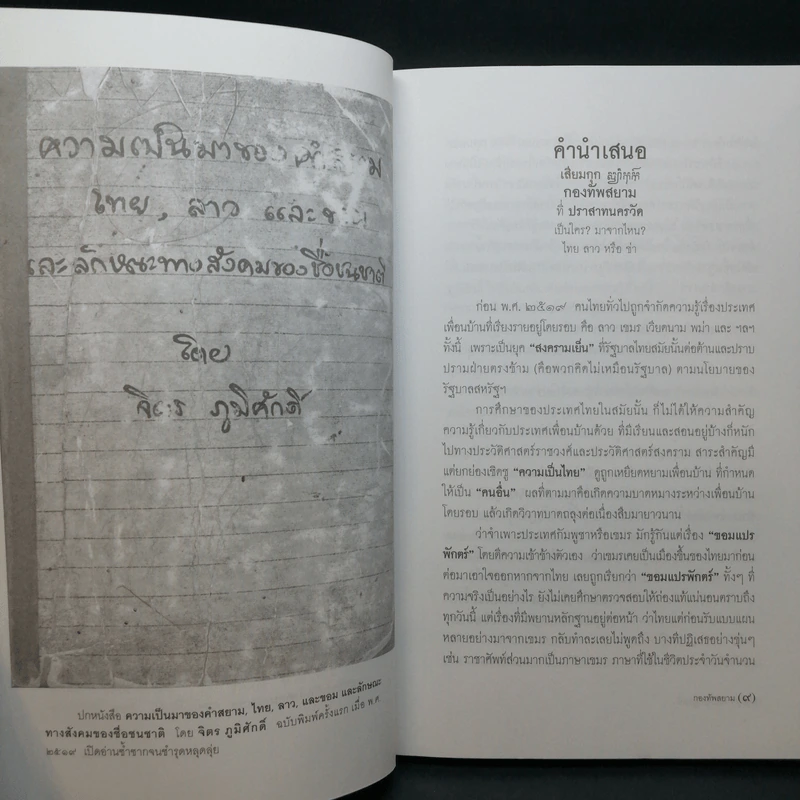 ความเป็นมาของคำสยาม
ไทย, ลาว และขอม
และลักษณะทางสังคมของชื่อชนชาติ
โดย
จิตร ภูมิศักดิ์
ปกหนังสือ ความเป็นมาของคำสยาม, ไทย, ลาว, และขอม และลักษณะ
ทางสังคมของชื่อชนชาติ โดย จิตร ภูมิศักดิ์ ฉบับพิมพ์ครั้งแรก เมื่อ พ.ศ.
๒๕๑๙ เปิดอ่านซ้ำซากจนชำรุดหลุดลุ่ย
คำนำเสนอ
เสียมกุก
กองทัพสยาม
ที่ ปราสาทนครวัด
เป็นใคร? มาจากไหน?
ไทย ลาว หรือ ข่า
ก่อน พ.ศ. ๒๕๑๙ คนไทยทั่วไปถูกจำกัดความรู้เรื่องประเทศ
เพื่อนบ้านที่เรียงรายอยู่โดยรอบ คือ ลาว เขมร เวียดนาม พม่า และ ฯลฯ
ทั้งนี้ เพราะเป็นยุค “สงครามเย็น” ที่รัฐบาลไทยสมัยนั้นต่อต้านและปราบ
ปรามฝ่ายตรงข้าม (คือพวกคิดไม่เหมือนรัฐบาล) ตามนโยบายของ
รัฐบาลสหรัฐฯ
การศึกษาของประเทศไทยในสมัยนั้น ก็ไม่ได้ให้ความสำคัญ
ความรู้เกี่ยวกับประเทศเพื่อนบ้านด้วย ที่มีเรียนและสอนอยู่บ้างก็หนัก
ไปทางประวัติศาสตร์ราชวงศ์และประวัติศาสตร์สงคราม สาระสำคัญมี
แต่ยกย่องเชิดชู “ความเป็นไทย” ดูถูกเหยียดหยามเพื่อนบ้าน ที่กำหนด
ให้เป็น “คนอื่น” ผลที่ตามมาคือเกิดความบาดหมางระหว่างเพื่อนบ้าน
โดยรอบ แล้วเกิดวิวาทบาดถลุงต่อเนื่องสืบมายาวนาน
ว่าจำเพาะประเทศกัมพูชาหรือเขมร มักรู้กันแต่เรื่อง “ขอมแปร
พักตร์” โดยตีความเข้าข้างตัวเอง ว่าเขมรเคยเป็นเมืองขึ้นของไทยมาก่อน
ต่อมาเอาใจออกหากจากไทย เลยถูกเรียกว่า “ขอมแปรพักตร์” ทั้งๆ ที่
ความจริงเป็นอย่างไร ยังไม่เคยศึกษาตรวจสอบให้ถ่องแท้แน่นอนตราบถึง
ทุกวันนี้ แต่เรื่องที่มีพยานหลักฐานอยู่ต่อหน้า ว่าไทยแต่ก่อนรับแบบแผน
หลายอย่างมาจากเขมร กลับทำละเลยไม่พูดถึง บางทีปฏิเสธอย่างขุ่นๆ
เช่น ราชาศัพท์ส่วนมากเป็นภาษาเขมร ภาษาที่ใช้ในชีวิตประจำวันจำนวน
กองทัพสยาม (๙)